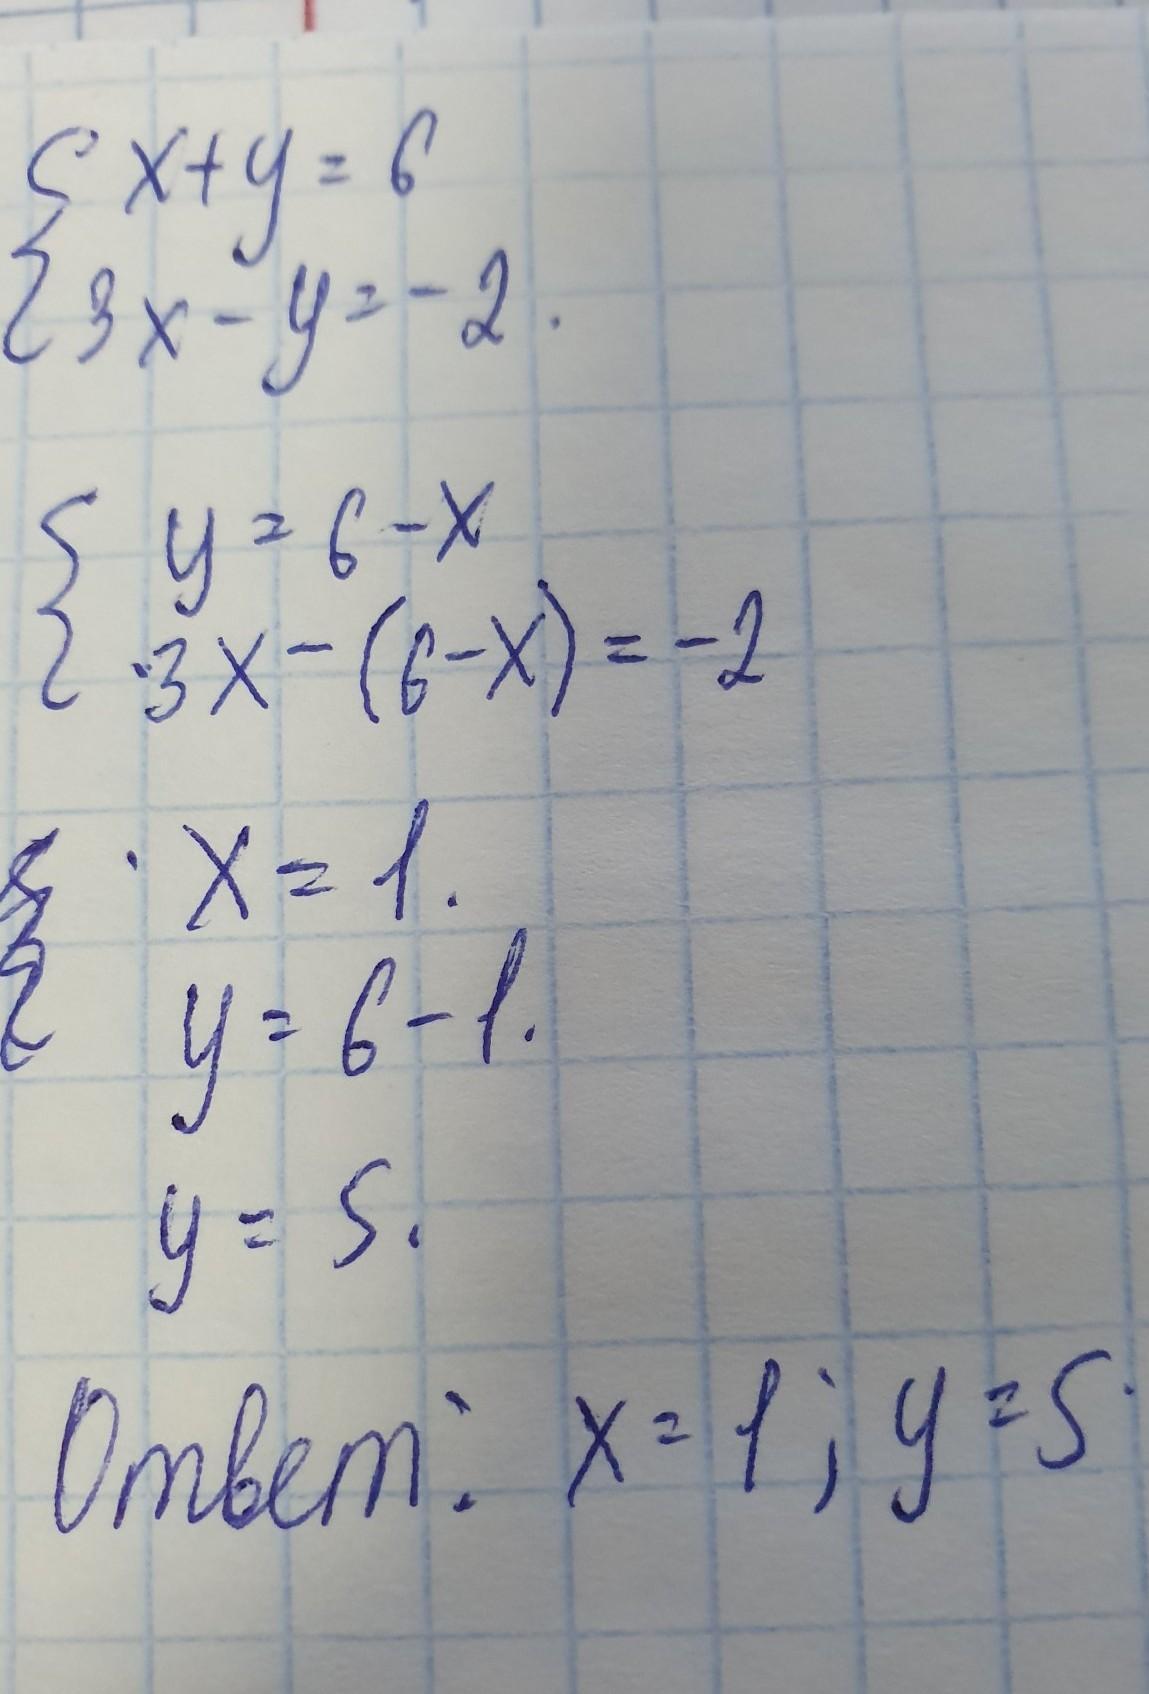 { x+y=6
{ 3x-y=-2.
{ y=6-x
{ 3x-(6-x)=-2
{ x=1.
{ y=6-1.
y=5.
Ответ: x=1; y=5